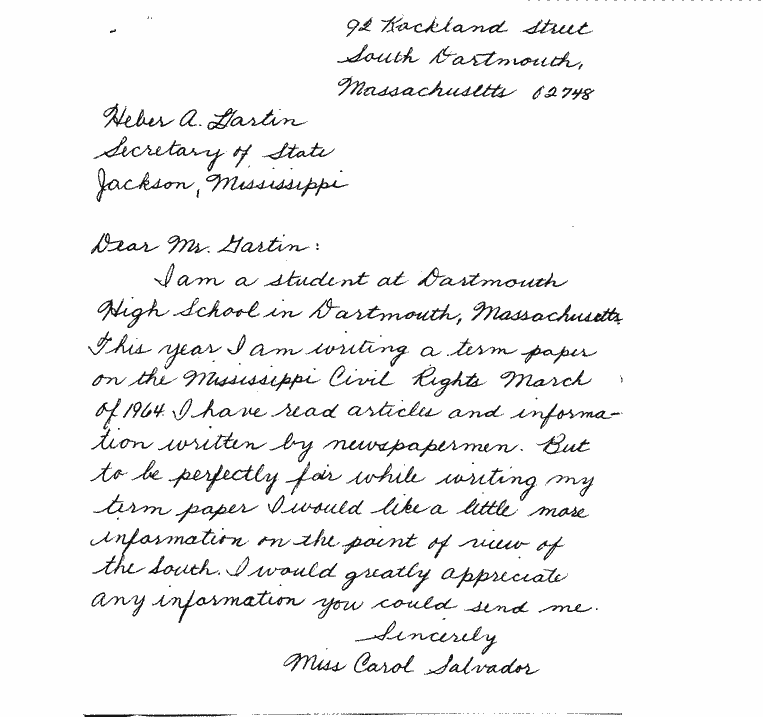 92 Rockland Street
South Dartmouth,
Massachusetts 02748
Heber A. Gartin
Secretary of State
Jackson, Mississippi
Dear Mr. Gartin:
I am a student at Dartmouth
High School in Dartmouth, Massachusetts.
This year I am writing a term paper
on the Mississippi Civil Rights March
of 1964. I have read articles and informa-
tion written by newspapermen. But
to be perfectly fair while writing my
term paper I would like a little more
information on the point of view of
the South. I would greatly appreciate
any information you could send me.
Sincerely
Miss Carol Salvador